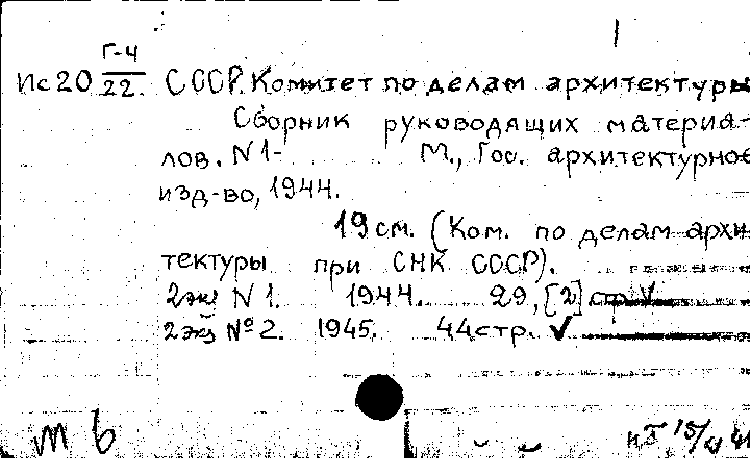 Г-4
Ис20 22. СССР. Комитет по делам архитектуры
Сборник руководящих материа-
лов. N1- М., Гос. архитектурное
изд-во, 1944.
19 см. (Ком. по делам архи-
тектуры при СНК СССР).
2экз N 1. 1944. 29, [2] стр. ✓
2экз № 2. 1945. 44 стр. ✓
т 6